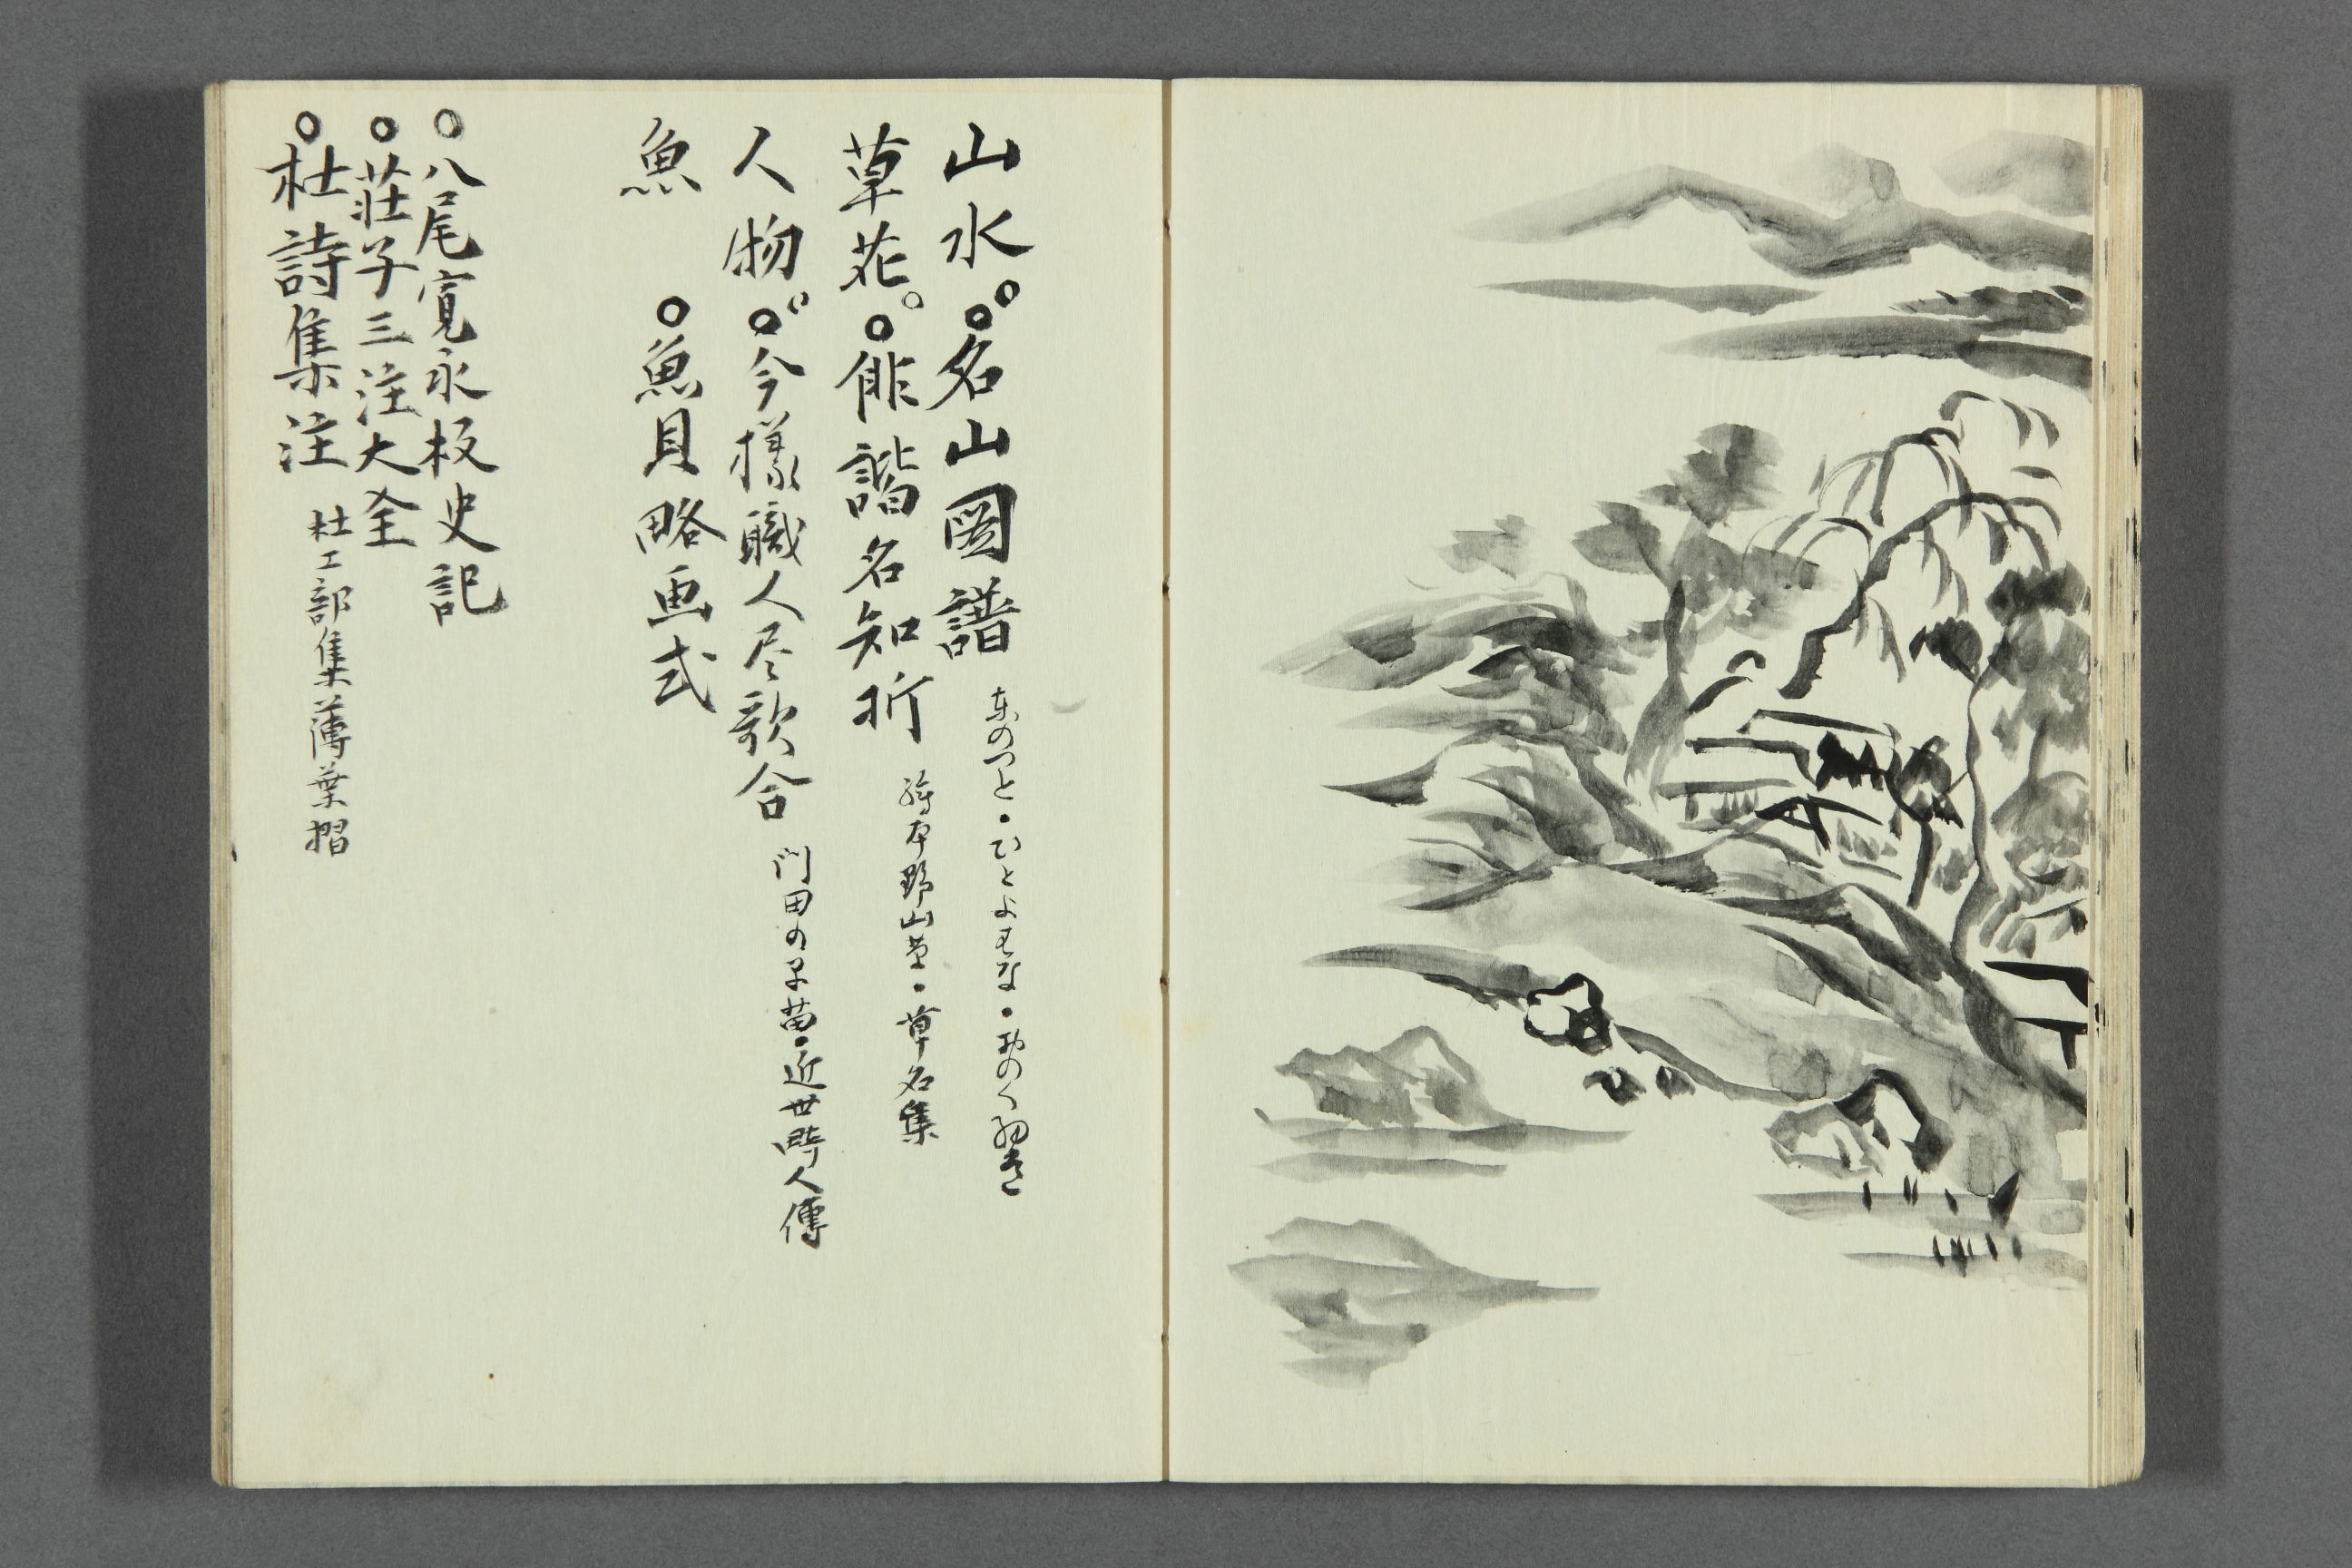 山水。○名山圖譜 東のつと・ひとよはな・
草花。○俳諧名知折 繪本野山草・草名集
人物。○今樣職人尽歌合 門田の早苗・近世畸人傳
魚 ○魚貝略画式
○八尾寛永板史記
○莊子三注大全
○杜詩集注 杜工部集薄葉摺